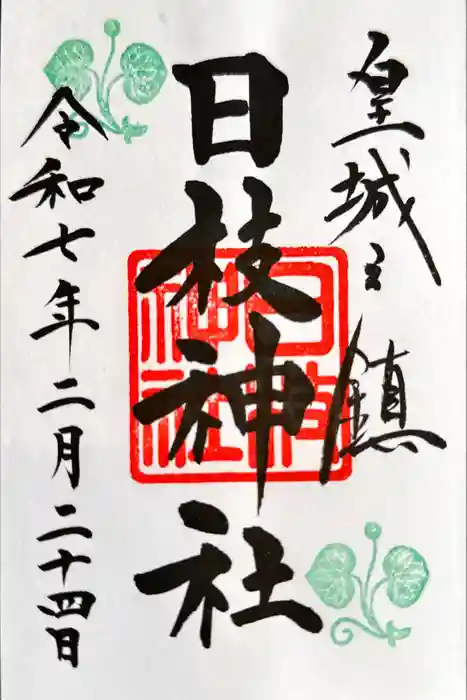 皇城之鎮
日枝神社
日枝神社
令和七年二月二十四日